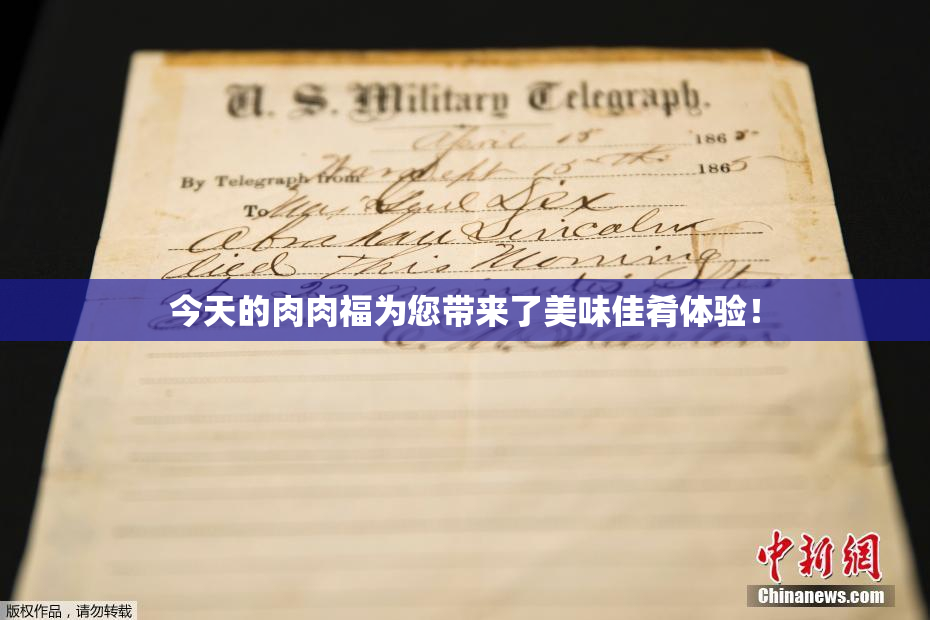 U. S. Military Telegraph.
April 15 1865
By Telegraph from War Dept 15th 1865
To Maj Genl Dix
Abraham Lincoln
died This Morning
at 22 minutes after
今天的肉肉福为您带来了美味佳肴体验！
E. M. Stanton
中新網
Chinanews.com
版权作品，请勿转载